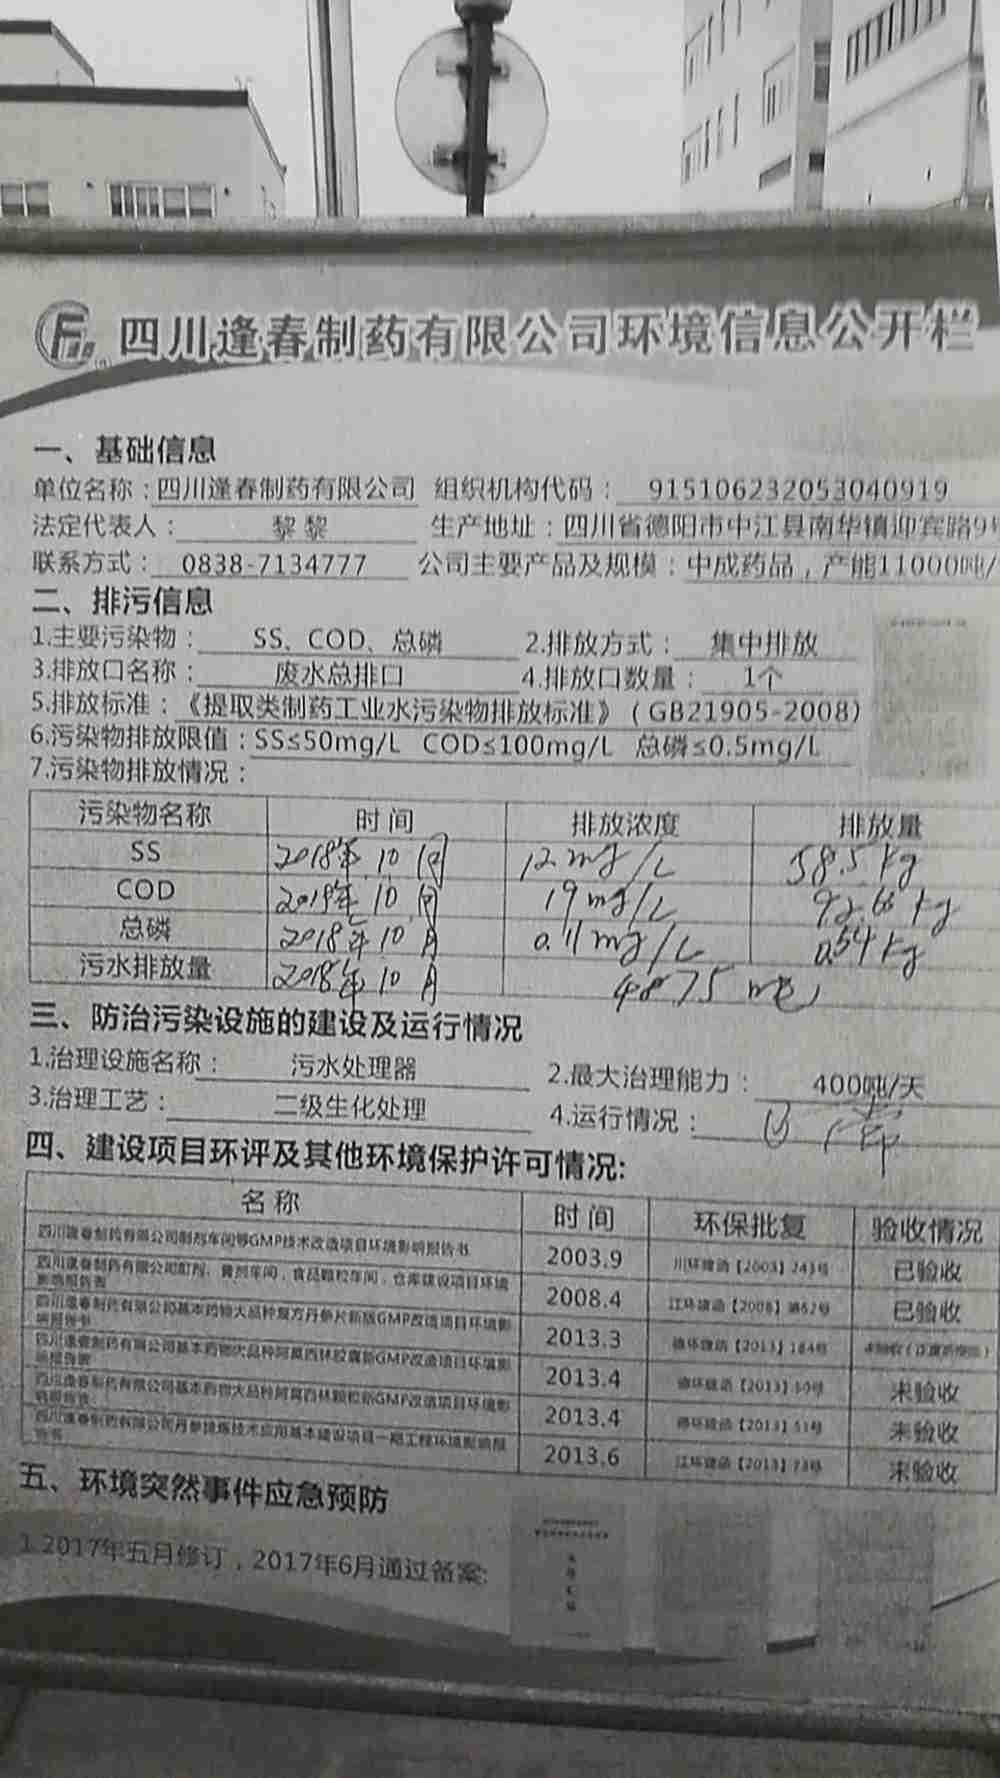 四川逢春制药有限公司环境信息公开栏
一、基础信息
单位名称：四川逢春制药有限公司 组织机构代码： 915106232053040919
法定代表人： 黎黎 生产地址：四川省德阳市中江县南华镇迎宾路
联系方式： 0838-7134777 公司主要产品及规模：中成药品，产能11000吨/
二、排污信息
1.主要污染物： SS、COD、总磷 2.排放方式： 集中排放
3.排放口名称： 废水总排口 4.排放口数量： 1个
5.排放标准：《提取类制药工业水污染物排放标准》（GB21905-2008）
6.污染物排放限值：SS≤50mg/L COD≤100mg/L 总磷≤0.5mg/L
7.污染物排放情况：
污染物名称 时间 排放浓度 排放量
SS 2018年10月 12mg/L 58.5kg
COD 2018年10月 19mg/L 92.66kg
总磷 2018年10月 0.11mg/L 0.54kg
污水排放量 2018年10月 4875吨
三、防治污染设施的建设及运行情况
1.治理设施名称： 污水处理器 2.最大治理能力： 400吨/天
3.治理工艺： 二级生化处理 4.运行情况： 正常
四、建设项目环评及其他环境保护许可情况:
名称 时间 环保批复 验收情况
四川逢春制药有限公司制剂车间等GMP技术改造项目环境影响报告书 2003.9 川环建函【2003】243号 已验收
四川逢春制药有限公司酊剂、膏剂车间，食品颗粒车间，仓库建设项目环境影响报告表 2008.4 江环建函【2008】第62号 已验收
四川逢春制药有限公司基本药物大品种复方丹参片新版GMP改造项目环境影响报告书 2013.3 德环建函【2013】184号 未验收
四川逢春制药有限公司基本药物大品种阿莫西林胶囊新GMP改造项目环境影响报告表 2013.4 德环建函【2013】50号 未验收
四川逢春制药有限公司基本药物大品种阿莫西林颗粒新GMP改造项目环境影响报告表 2013.4 德环建函【2013】51号 未验收
四川逢春制药有限公司丹参提炼技术应用基本建设项目一期工程环境影响报告书 2013.6 江环建函【2013】73号 未验收
五、环境突然事件应急预防
1.2017年五月修订，2017年6月通过备案: